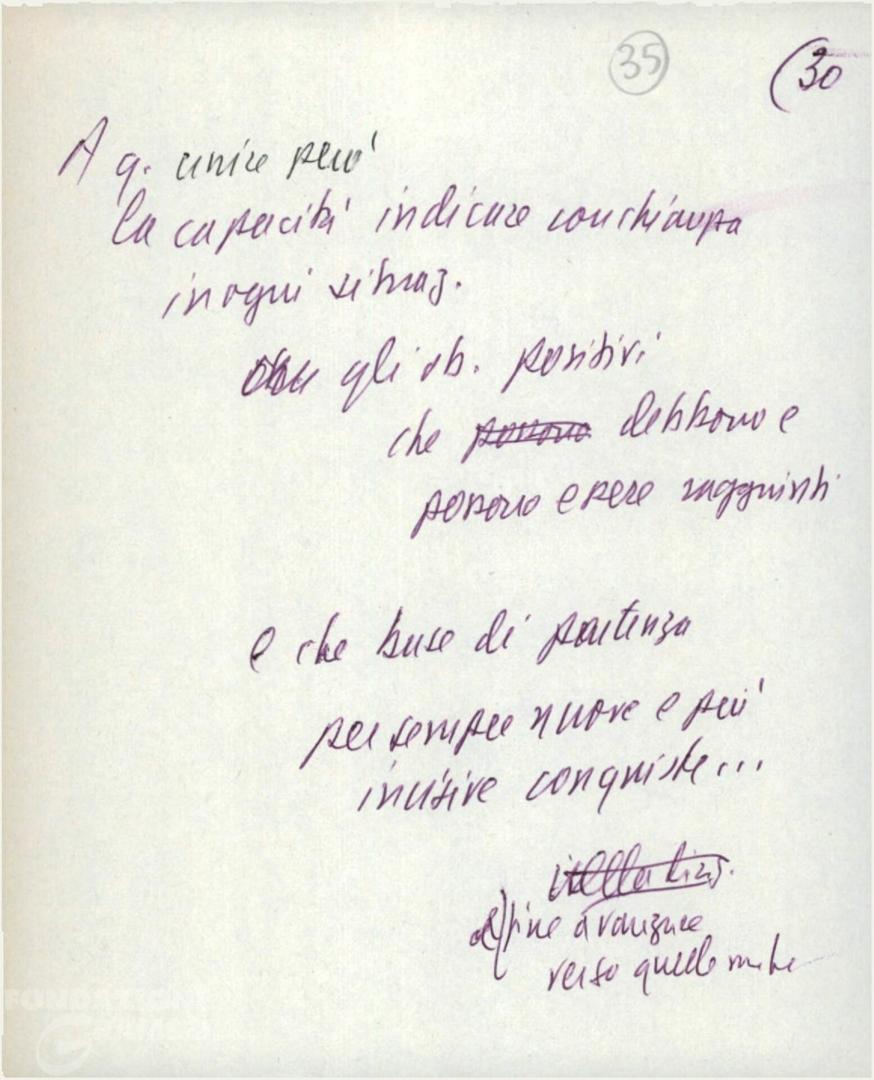 35
(30
A q. unire però
la capacità indicare con chiarezza
in ogni situaz.
gli ob. positivi
che possono debbono e
possono essere raggiunti
e che base di partenza
per sempre nuove e più
incisive conquiste...
fine avanzare
verso quelle
FONDAZIONE